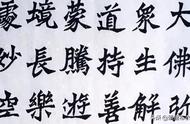 大佛
衆生解
道持善
蒙騰遊
境長樂
處妙空